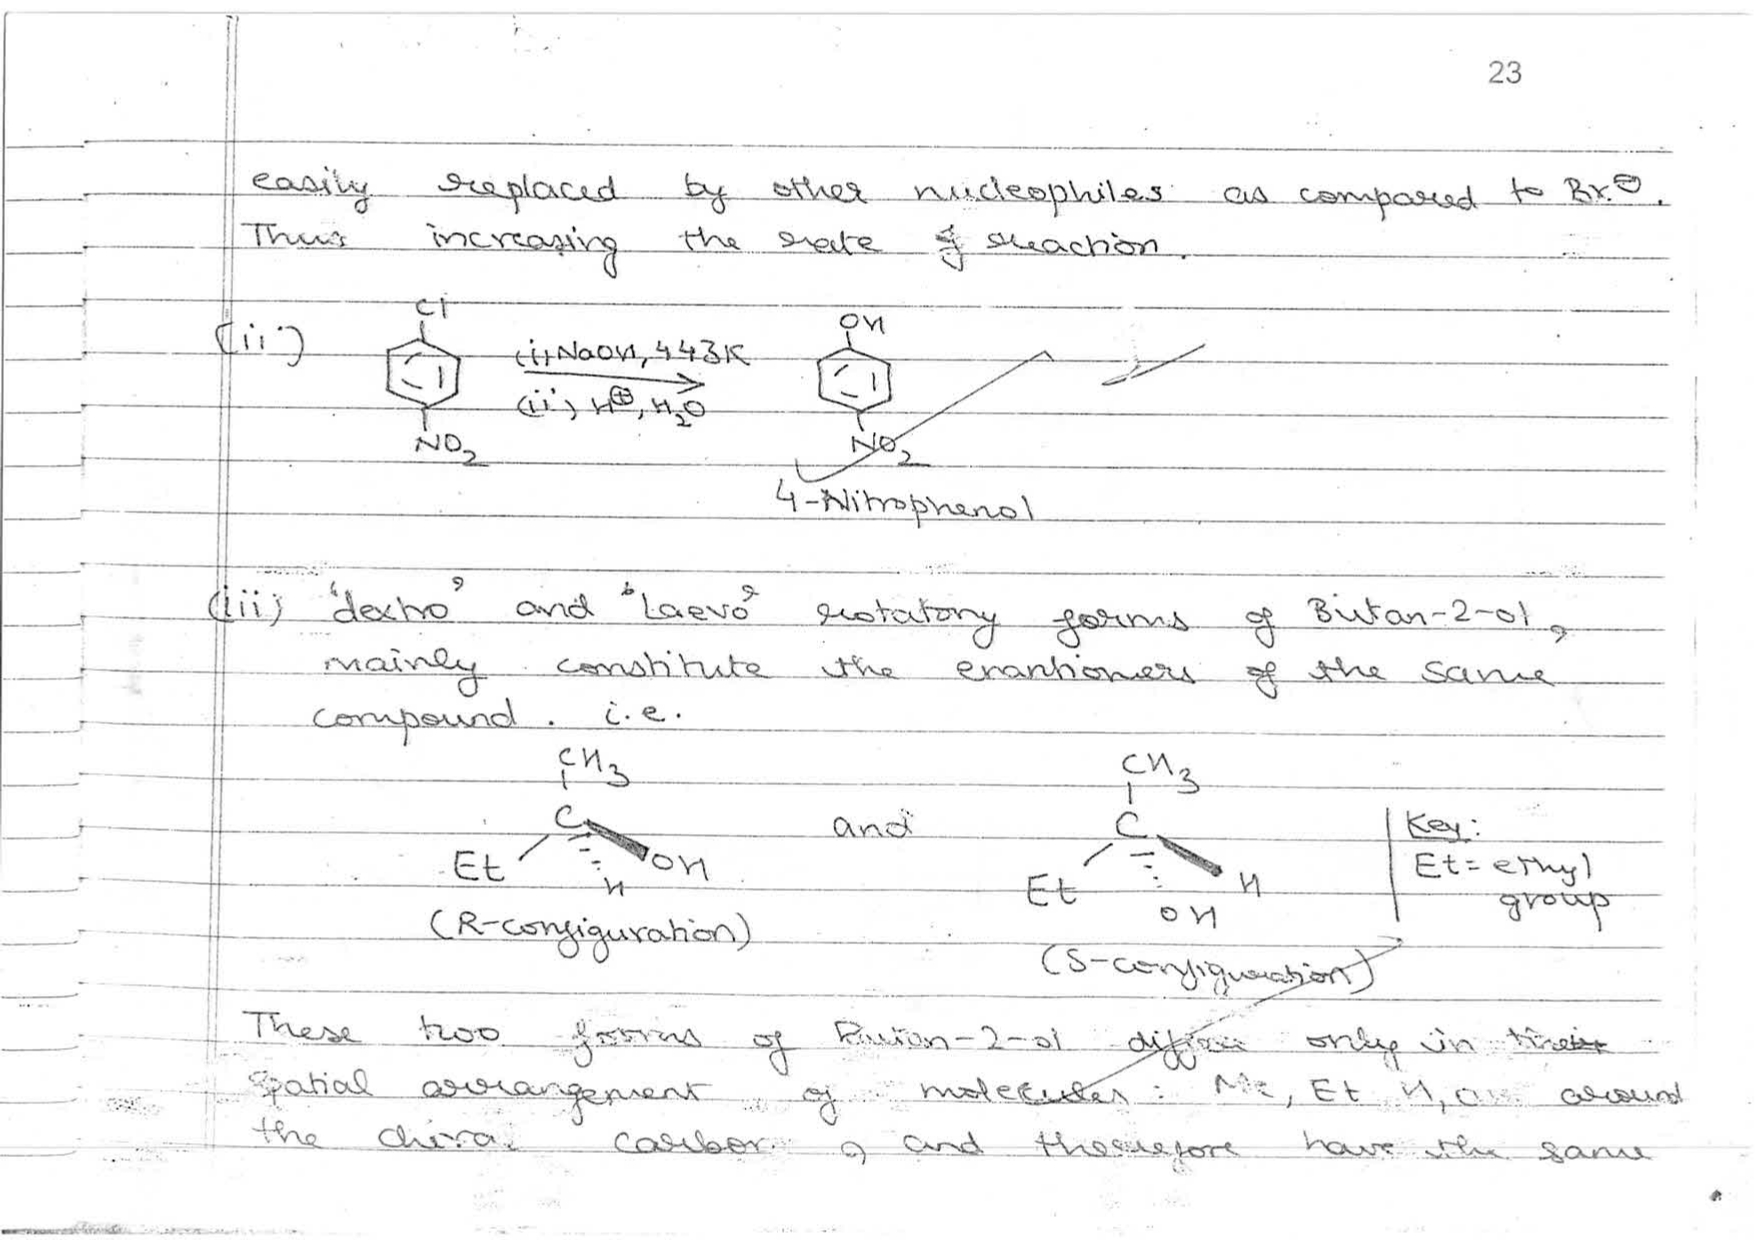 23
easily replaced by other nucleophiles as compared to Br⊖.
Thus increasing the rate of reaction.
(ii) Cl (i) NaOH, 443K OH
(ii) H⊕, H2O
NO2 NO2
4-Nitrophenol
(iii) 'dextro' and 'Laevo' rotatory forms of Butan-2-ol,
mainly constitute the enantiomers of the same
compound. i.e.
CH3 CH3
C and C Key:
Et OH Et H Et = ethyl
H OH group
(R-configuration) (S-configuration)
These two forms of Butan-2-ol differ only in their
spatial arrangement of molecules : Me, Et, H, around
the chiral carbon, and therefore have the same